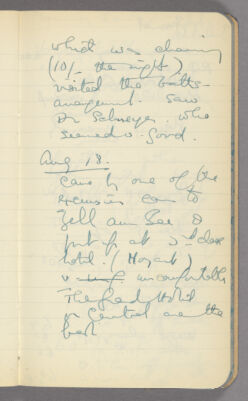 which was charming
(10/- the night)
visited the baths
arrangement. Saw
Dr who
seemed v. good.
Aug 18.
Came by one of the
excursion cars to
Zell am See &
put up at 2nd class
hotel. (Mozart)
v. uncomfortable
The Grand Hotel
or Central are the
best